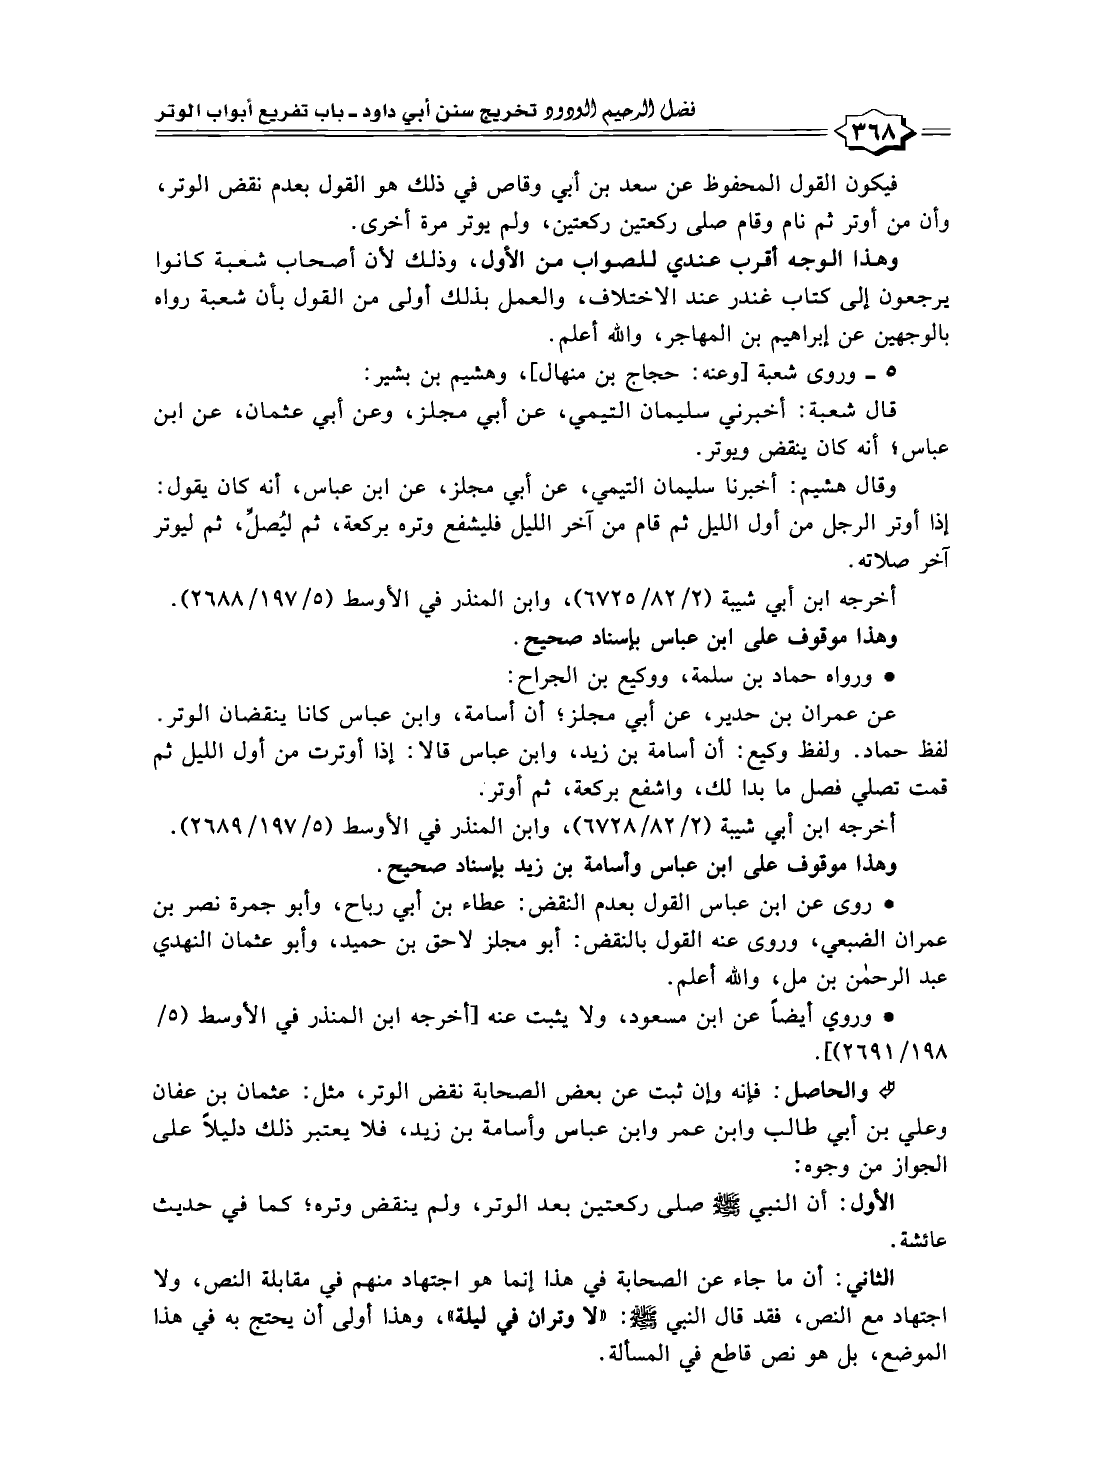 فضل الرحيم الودود تخريج سنن أبي داود ـ باب تفريع أبواب الوتر
٣٦٨
فيكون القول المحفوظ عن سعد بن أبي وقاص في ذلك هو القول بعدم نقض الوتر،
وأن من أوتر ثم نام وقام صلى ركعتين ركعتين، ولم يوتر مرة أخرى.
وهذا الوجه أقرب عندي للصواب من الأول، وذلك لأن أصحاب شعبة كانوا
يرجعون إلى كتاب غندر عند الاختلاف، والعمل بذلك أولى من القول بأن شعبة رواه
بالوجهين عن إبراهيم بن المهاجر، والله أعلم.
٥ ـ وروى شعبة [وعنه: حجاج بن منهال]، وهشيم بن بشير:
قال شعبة: أخبرني سليمان التيمي، عن أبي مجلز، وعن أبي عثمان، عن ابن
عباس؛ أنه كان ينقض ويوتر.
وقال هشيم: أخبرنا سليمان التيمي، عن أبي مجلز، عن ابن عباس، أنه كان يقول:
إذا أوتر الرجل من أول الليل ثم قام من آخر الليل فليشفع وتره بركعة، ثم ليُصلِّ، ثم ليوتر
آخر صلاته.
أخرجه ابن أبي شيبة (٢/ ٨٢/ ٦٧٢٥)، وابن المنذر في الأوسط (٥/ ١٩٧/ ٢٦٨٨).
وهذا موقوف على ابن عباس بإسناد صحيح.
• ورواه حماد بن سلمة، ووكيع بن الجراح:
عن عمران بن حدير، عن أبي مجلز؛ أن أسامة، وابن عباس كانا ينقضان الوتر.
لفظ حماد. ولفظ وكيع: أن أسامة بن زيد، وابن عباس قالا: إذا أوترت من أول الليل ثم
قمت تصلي فصل ما بدا لك، واشفع بركعة، ثم أوتر.
أخرجه ابن أبي شيبة (٢/ ٨٢/ ٦٧٢٨)، وابن المنذر في الأوسط (٥/ ١٩٧/ ٢٦٨٩).
وهذا موقوف على ابن عباس وأسامة بن زيد بإسناد صحيح.
• روى عن ابن عباس القول بعدم النقض: عطاء بن أبي رباح، وأبو جمرة نصر بن
عمران الضبعي، وروى عنه القول بالنقض: أبو مجلز لاحق بن حميد، وأبو عثمان النهدي
عبد الرحمٰن بن مل، والله أعلم.
• وروي أيضاً عن ابن مسعود، ولا يثبت عنه [أخرجه ابن المنذر في الأوسط (٥/
١٩٨/ ٢٦٩١)].
والحاصل: فإنه وإن ثبت عن بعض الصحابة نقض الوتر، مثل: عثمان بن عفان
وعلي بن أبي طالب وابن عمر وابن عباس وأسامة بن زيد، فلا يعتبر ذلك دليلاً على
الجواز من وجوه:
الأول: أن النبي ﷺ صلى ركعتين بعد الوتر، ولم ينقض وتره؛ كما في حديث
عائشة.
الثاني: أن ما جاء عن الصحابة في هذا إنما هو اجتهاد منهم في مقابلة النص، ولا
اجتهاد مع النص، فقد قال النبي ﷺ: «لا وتران في ليلة»، وهذا أولى أن يحتج به في هذا
الموضع، بل هو نص قاطع في المسألة.